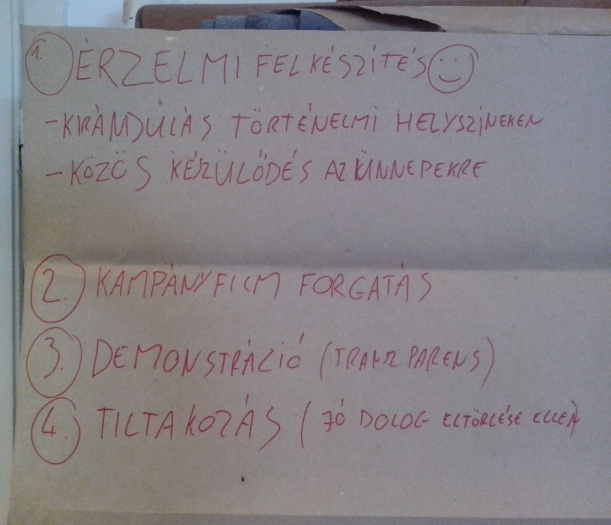 1. ÉRZELMI FELKÉSZÍTÉS
-KIRÁNDULÁS TÖRTÉNELMI HELYSZÍNEKEN
-KÖZÖS KÉSZÜLŐDÉS AZ ÜNNEPEKRE
2. KAMPÁNYFILM FORGATÁS
3. DEMONSTRÁCIÓ (TRANZPARENS)
4. TILTAKOZÁS (JÓ DOLOG ELTÖRLÉSE ELLEN)